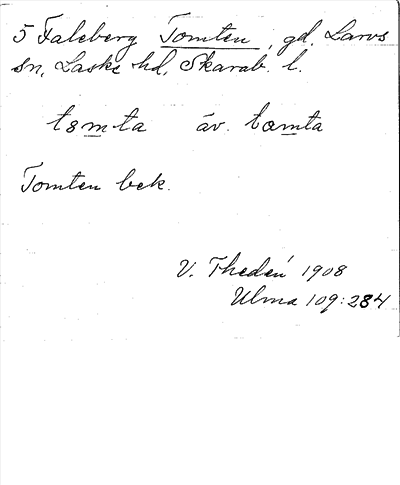 5 Faleberg Tomten, gd. Larvs
sn, Laske hd, Skarab. l.
tomta äv. tomta
Tomten bek.
V. Thedén 1908
Ulma 109:284